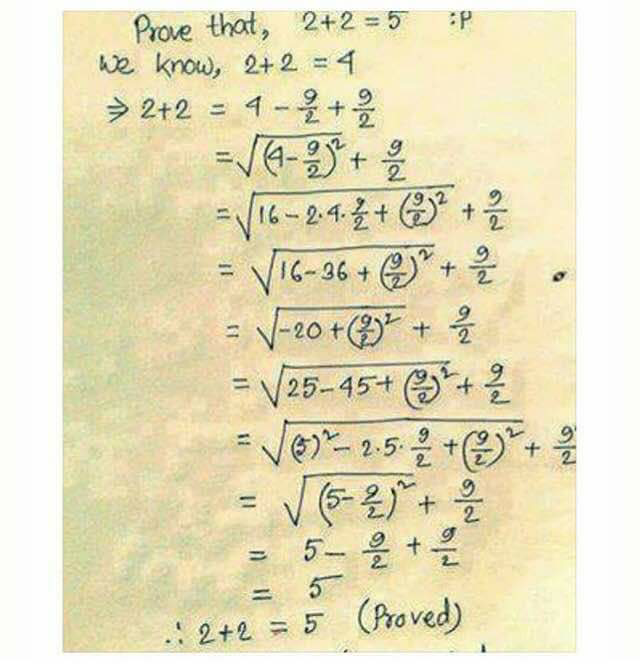 Prove that, 2+2 = 5 :P
we know, 2+2 = 4
⇒ 2+2 = 4 - 9/2 + 9/2
= √(4-9/2)² + 9/2
= √16 - 2·4·9/2 + (9/2)² + 9/2
= √16-36 + (9/2)² + 9/2
= √-20 + (9/2)² + 9/2
= √25-45+ (9/2)² + 9/2
= √(5)² - 2·5·9/2 + (9/2)² + 9/2
= √(5-9/2)² + 9/2
= 5 - 9/2 + 9/2
= 5
∴ 2+2 = 5 (Proved)